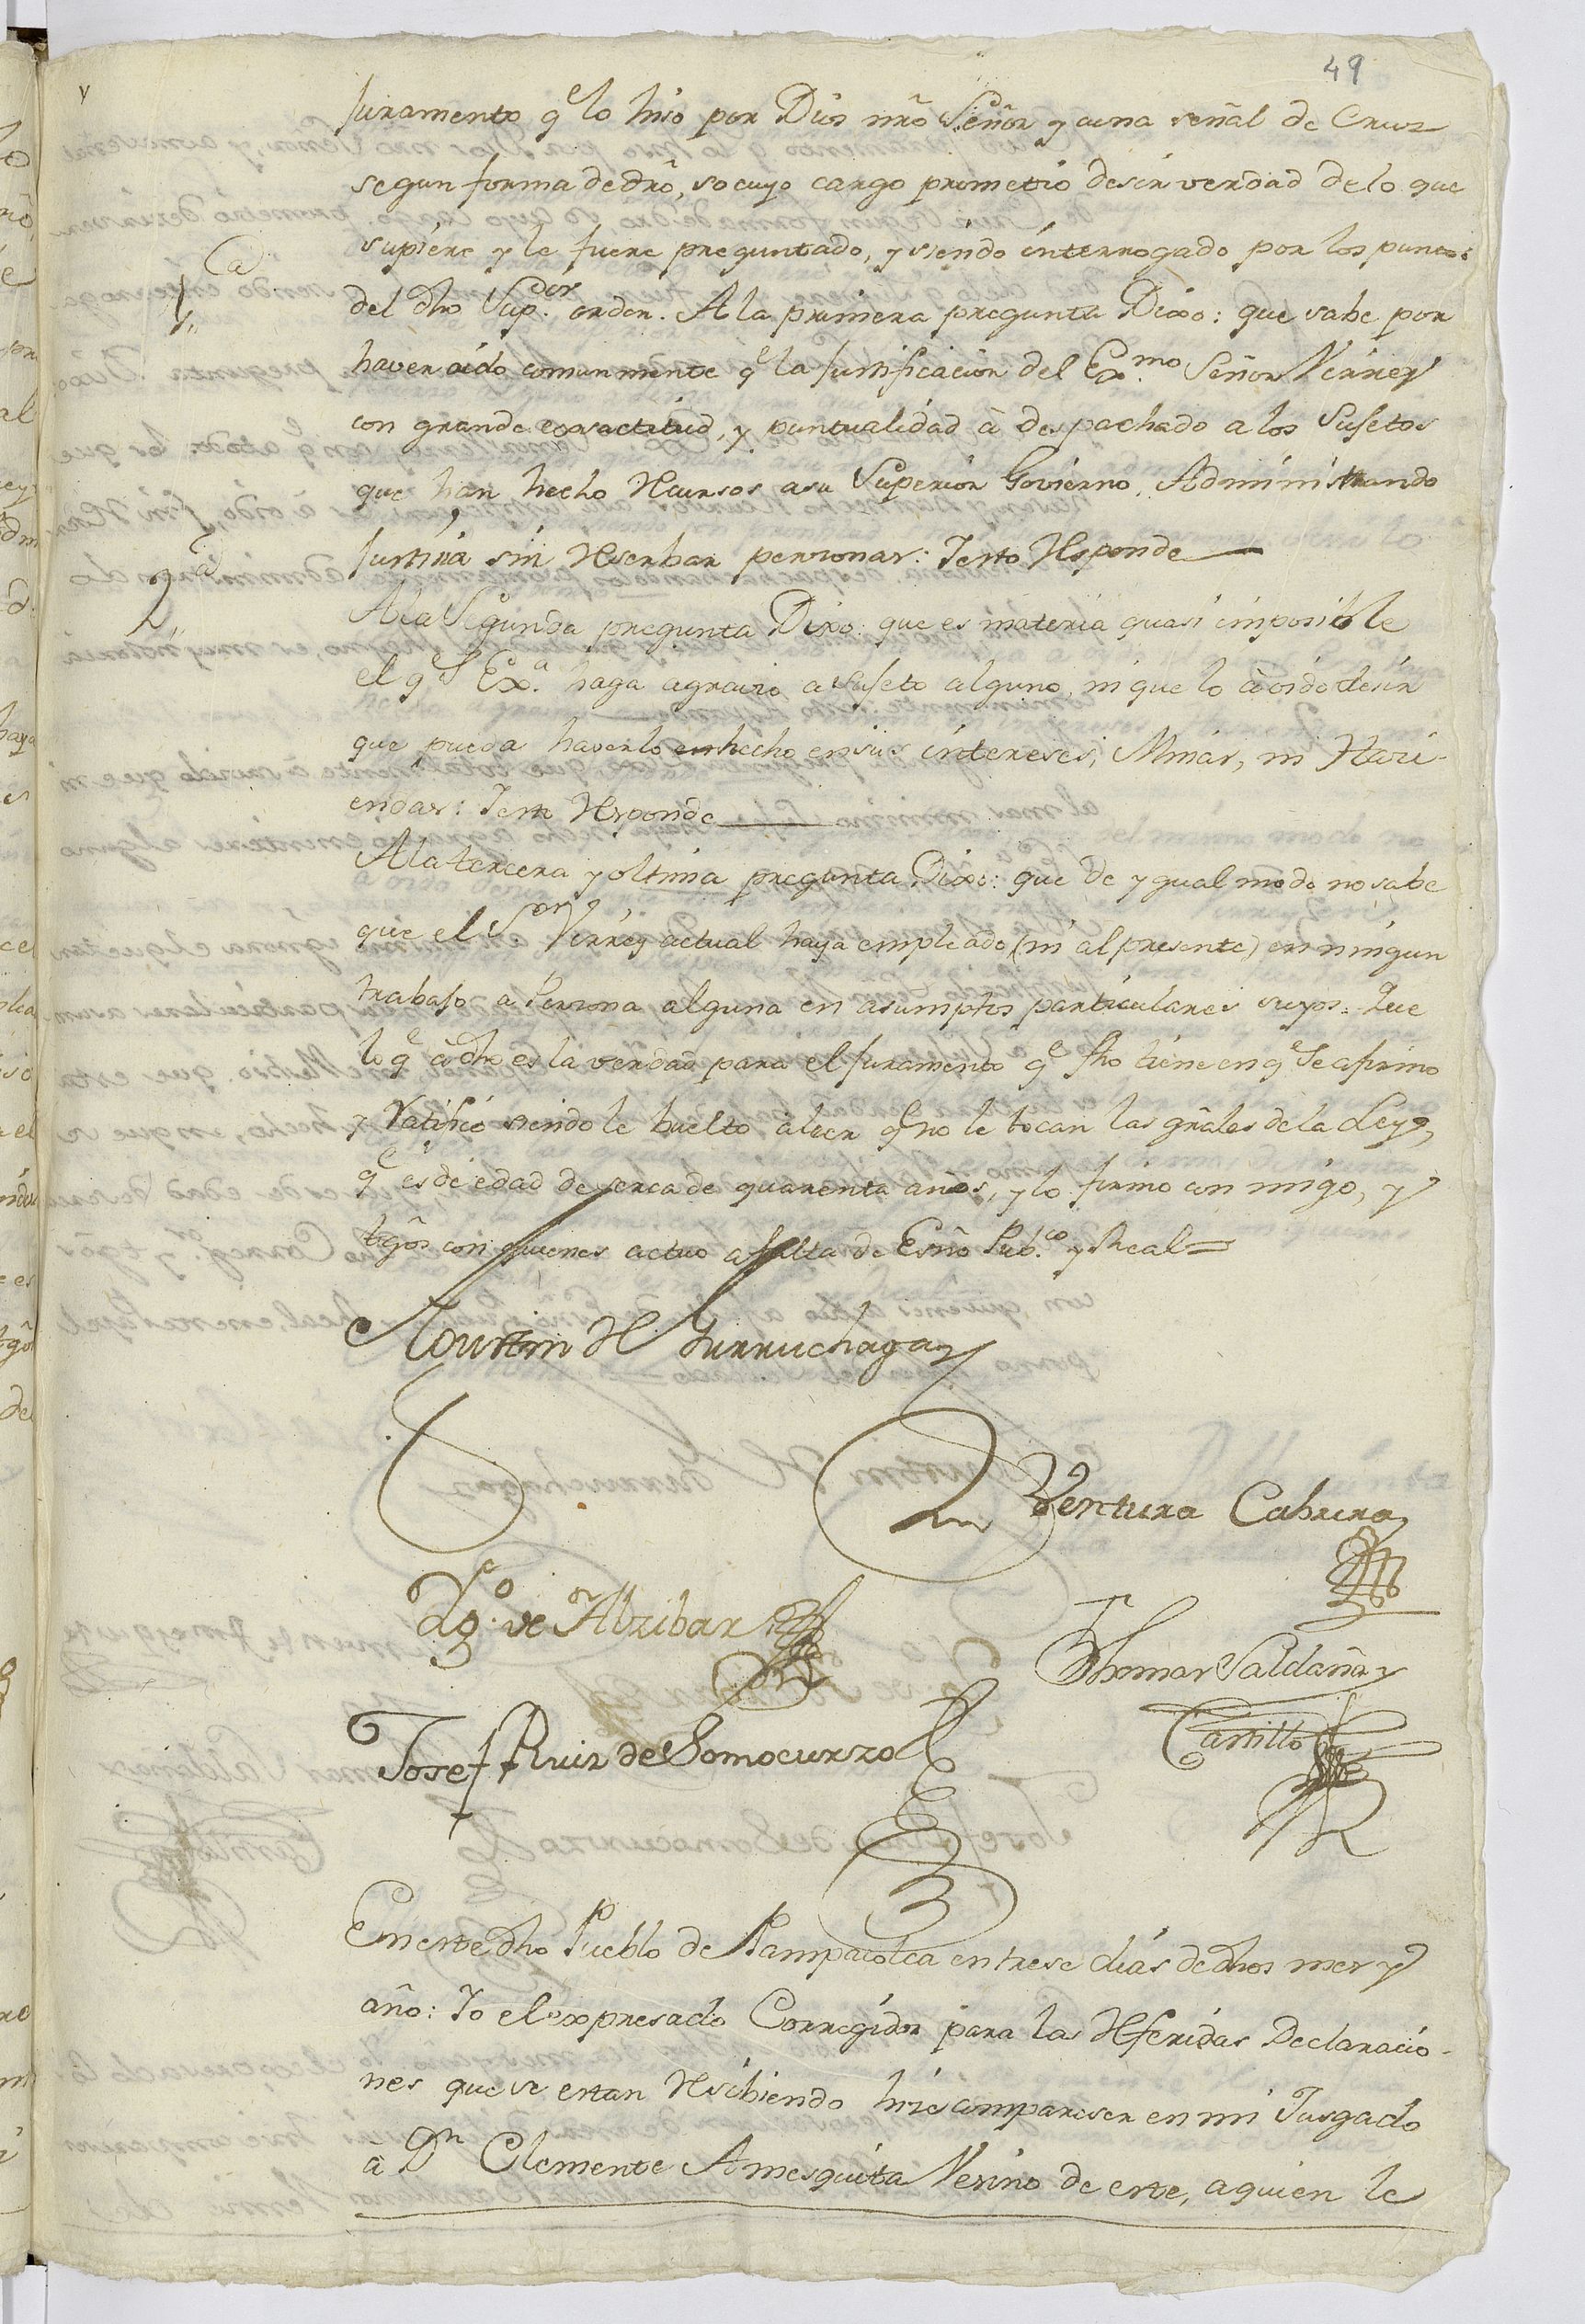 49
Juramento qe lo hiso por Dios nrõ Señor y a una señal de Cruz
segun forma de drõ, so cuyo cargo prometio desir verdad de lo que
supiere y le fuere preguntado, y siendo interrogado por los puntos
1a del dho Supor orden. A la primera pregunta Dixo: que sabe por
haver oido comunmente qe la Justificacion del Exmo Señor Virrey
con grande exsactitud, y puntualidad à despachado a los Sujetos
que han hecho Recursos a su Superior Govierno, Administrando
Justicia sin Reserbar personas: Y esto Responde
2a A la Segunda pregunta Dixo: que es materia quasi imposible
el q S Exa. haga agravio a Sujeto alguno, ni que lo à oido desir
que pueda haverlo hecho en sus intereses, Minas, ni Hazi-
endas: Y esto Responde
A la tercera y oltima pregunta Dixo: que de ygual modo no sabe
que el Sor Virrey actual haya empleado (ni al presente) en ningun
trabajo a Persona alguna en asumptos particulares suyos. Que
lo qe à dho es la verdad para el Juramento qe fho tiene en qe Se afirmo
y Ratificó siendole buelto a leer q no le tocan las grãles de la Ley,
qe es de edad de serca de quarenta años, y lo firmo con migo, y
tgõs con quienes actuo a falta de Esño Pubco y Real=
Martin de Gurruchaga
Ventura Cabrera
Dgo. de Alzibar
Thomas Saldaña y
Castillo
Josef Ruiz de Somocurzo
En este dho Pueblo de Pampacolca en trese dias de dhos mes y
año: Yo el expresado Corregidor para las Referidas Declaracio-
nes que se estan Resibiendo hize compareser en mi Jusgado
à Dn Clemente Amesquita Vesino de este, a quien le